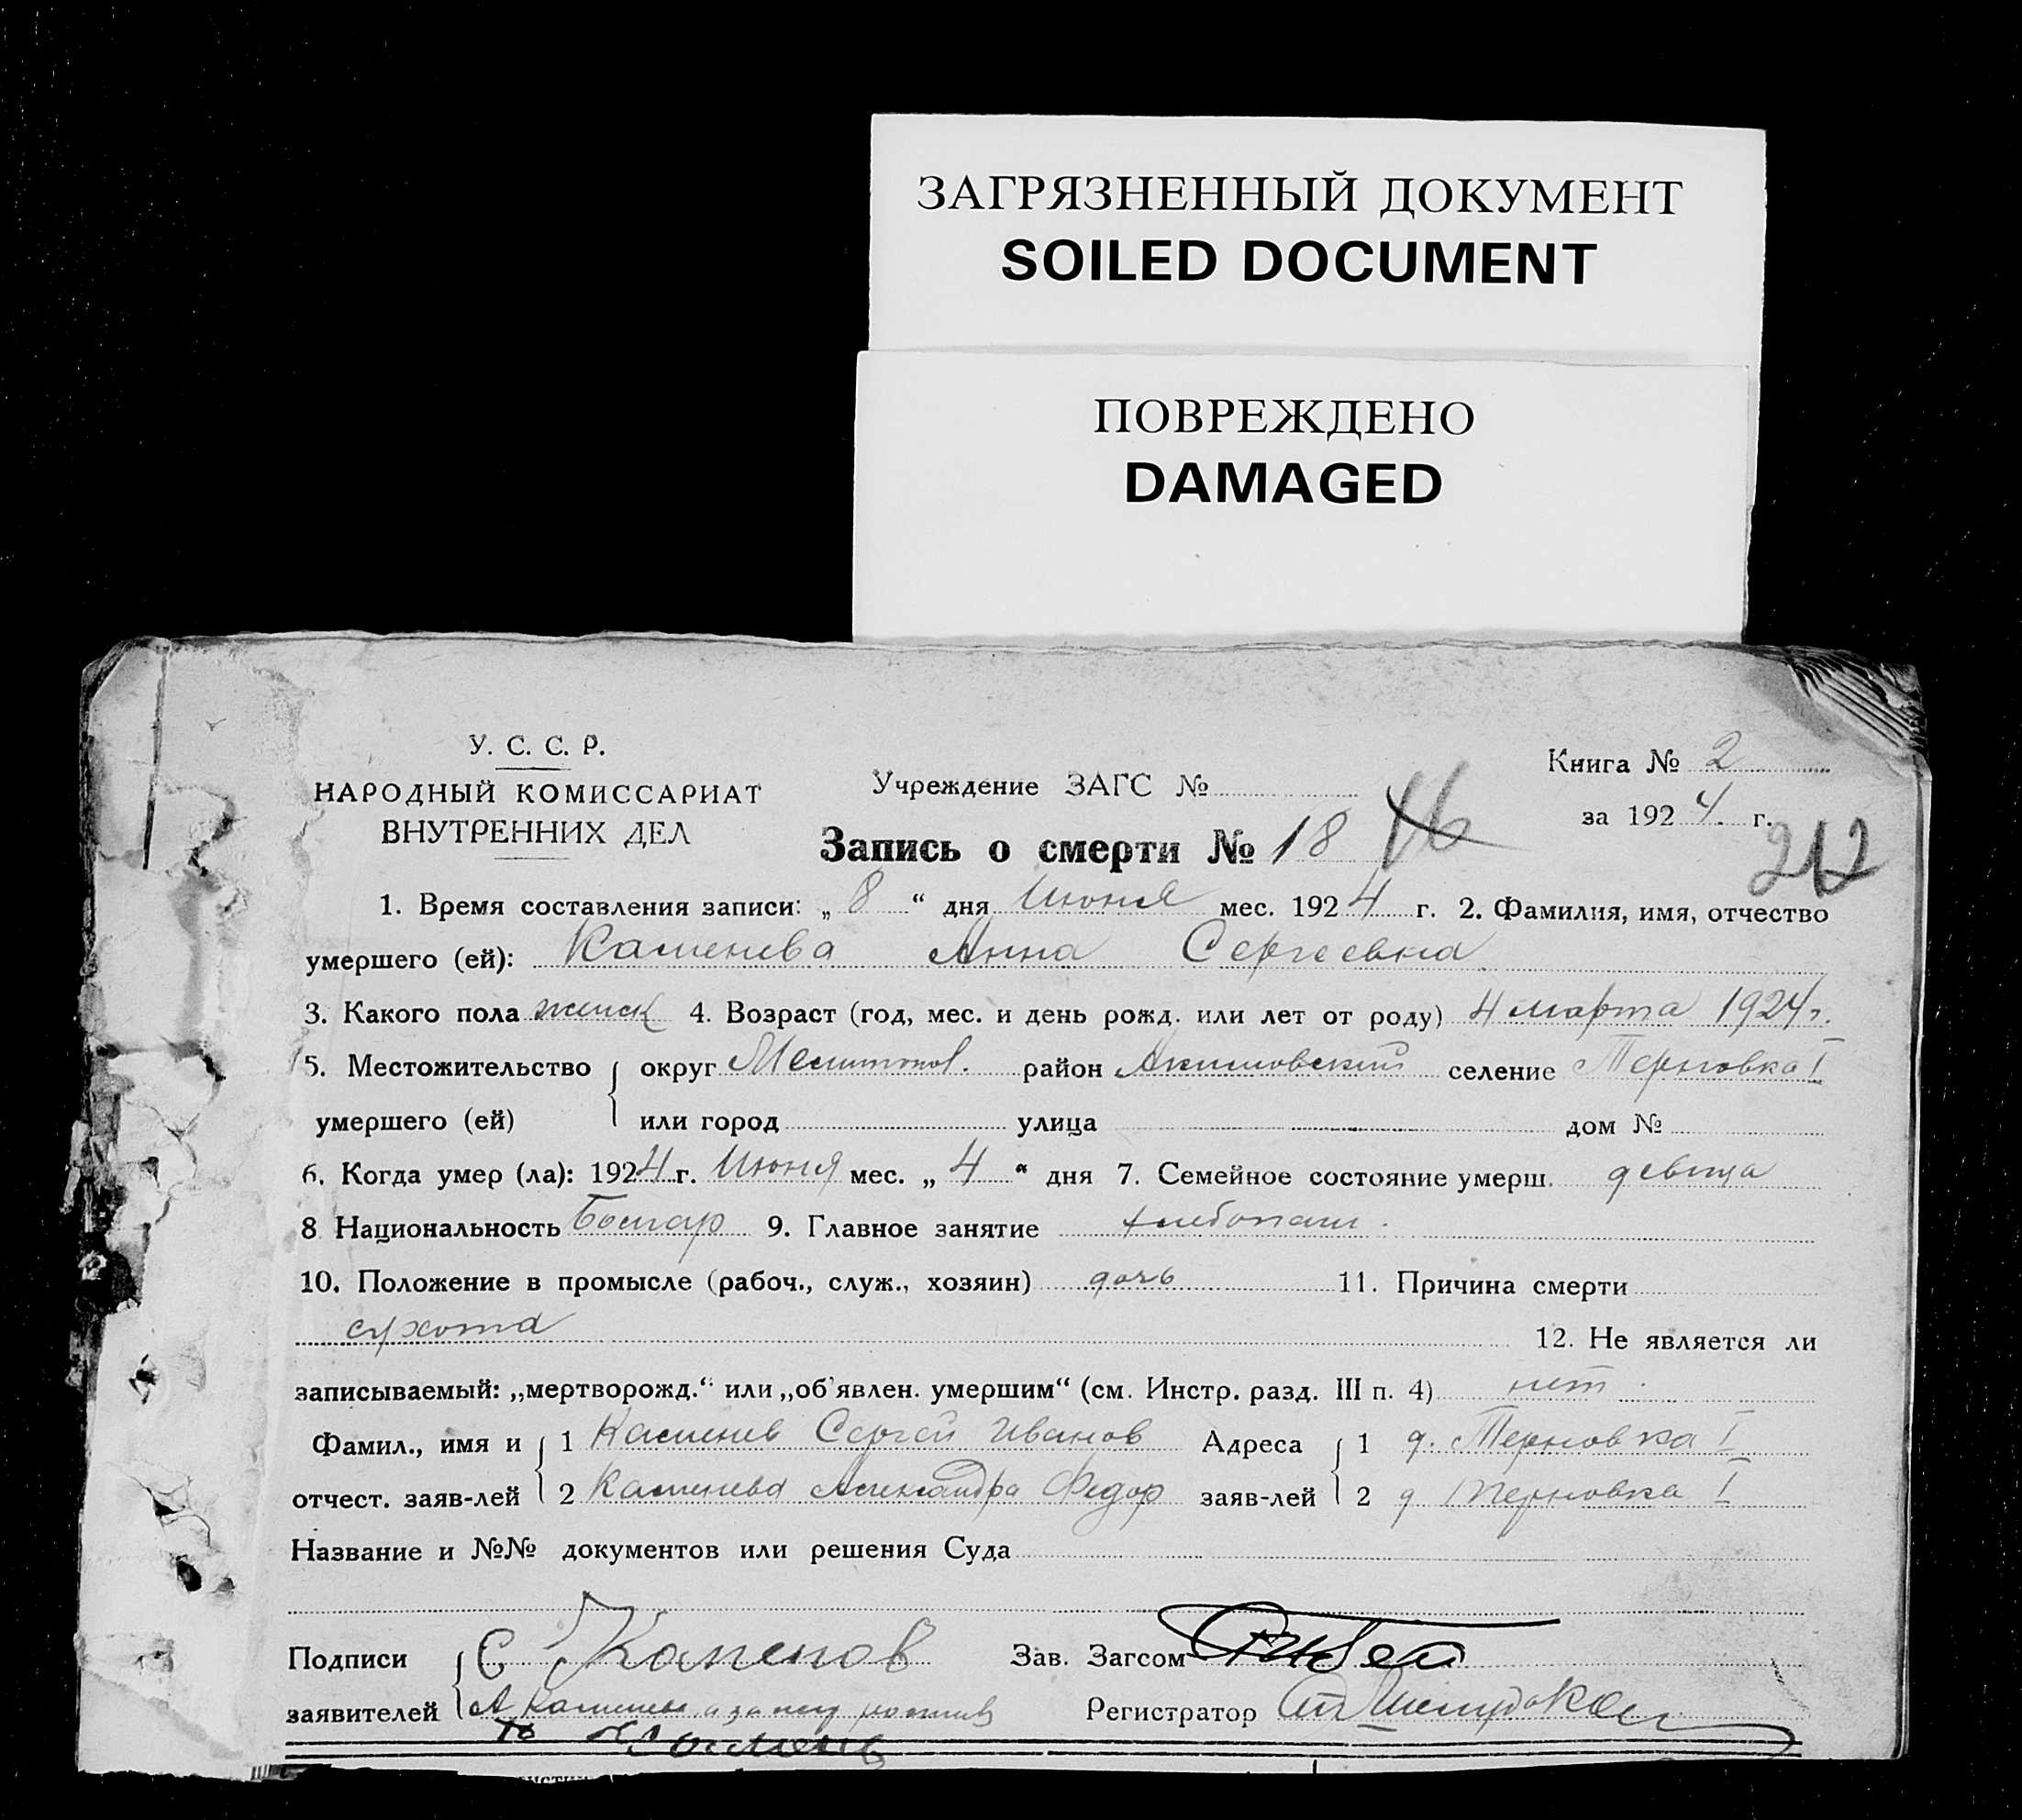 ЗАГРЯЗНЕННЫЙ ДОКУМЕНТ
SOILED DOCUMENT
ПОВРЕЖДЕНО
DAMAGED
У. С. С. Р.
НАРОДНЫЙ КОМИССАРИАТ
ВНУТРЕННИХ ДЕЛ
Учреждение ЗАГС №
Книга № 2
за 1924 г.
Запись о смерти № 18 46
212
1. Время составления записи: „8“ дня Июня мес. 1924 г. 2. Фамилия, имя, отчество
умершего (ей): Каменева Анна Сергеевна
3. Какого пола женск 4. Возраст (год, мес. и день рожд. или лет от роду) 4 марта 1924 г.
5. Местожительство умершего (ей) округ Мелитопол. район Акимовский селение Терновка I
или город улица дом №
6. Когда умер (ла): 1924 г. Июня мес. „4“ дня 7. Семейное состояние умерш. девица
8 Национальность Болгар 9. Главное занятие хлебопаш.
10. Положение в промысле (рабоч., служ., хозяин) дочь 11. Причина смерти
сухота 12. Не является ли
записываемый: „мертворожд.“ или „об'явлен. умершим“ (см. Инстр. разд. III п. 4) нет.
Фамил., имя и 1 Каменев Сергей Иванов Адреса 1 д. Терновка I
отчест. заяв-лей 2 Каменева Александра Федор заяв-лей 2 д Терновка I
Название и №№ документов или решения Суда
Подписи С Каменов Зав. Загсом
заявителей А Каменева а за нею Регистратор